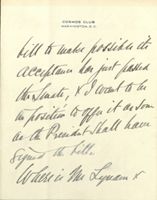 COSMOS CLUB
WASHINGTON, D.C.
bill to make possible its
acceptance has just passed
the Senate, & I want to be
in position to offer it as soon
as the President shall have
signed the bill.
Where is Mr Lyman &